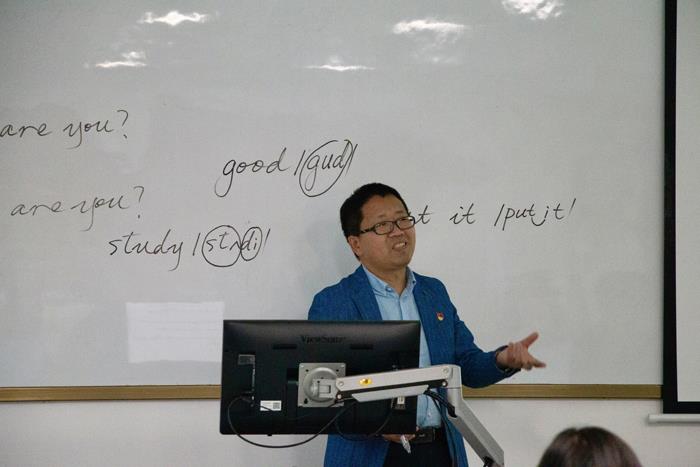 are you?
good /gud/
are you?
it /putit/
study /stʌdi/
ViewSonic